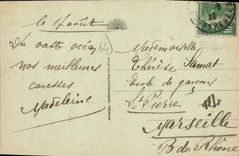 le 4 août
Du vaste océan
nos meilleures
caresses
Madeleine
Mademoiselle
Thérèse
École de garçons
St Pierre
Marseille
B. de Rhône